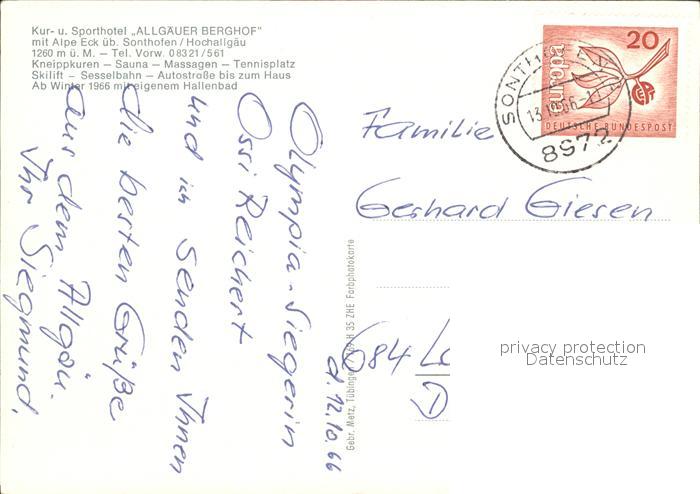 Kur- u. Sporthotel „ALLGÄUER BERGHOF"
mit Alpe Eck üb. Sonthofen / Hochallgäu
1260 m ü. M. — Tel. Vorw. 08321/561
Kneippkuren — Sauna — Massagen — Tennisplatz
Skilift — Sesselbahn — Autostraße bis zum Haus
Ab Winter 1966 mit eigenem Hallenbad
d. 12.10.66
Olympia-Siegerin
Ossi Reichert
und ich senden Ihnen
die besten Grüße
aus dem Allgäu.
Ihr Siegmund.
Gebr. Metz, Tübingen
H 35 ZHE Farbphotokarte
20
europa
DEUTSCHE BUNDESPOST
SONTHOFEN
8972
Familie
Gerhard Giesen
684
privacy protection
Datenschutz